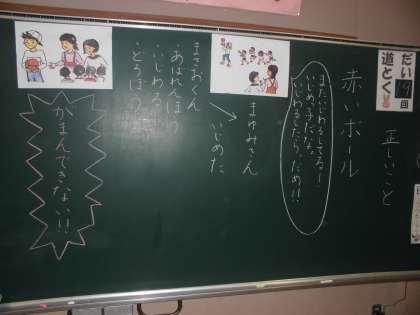 だい
回
道とく
正しいこと
赤いボール
またいじわるしてる!
いじめっ子だな。
いじわるしたら、だめ!!
まゆみさん
いじめた
まさおくん
・あばれんぼう
・いじわる
がまんできない!!